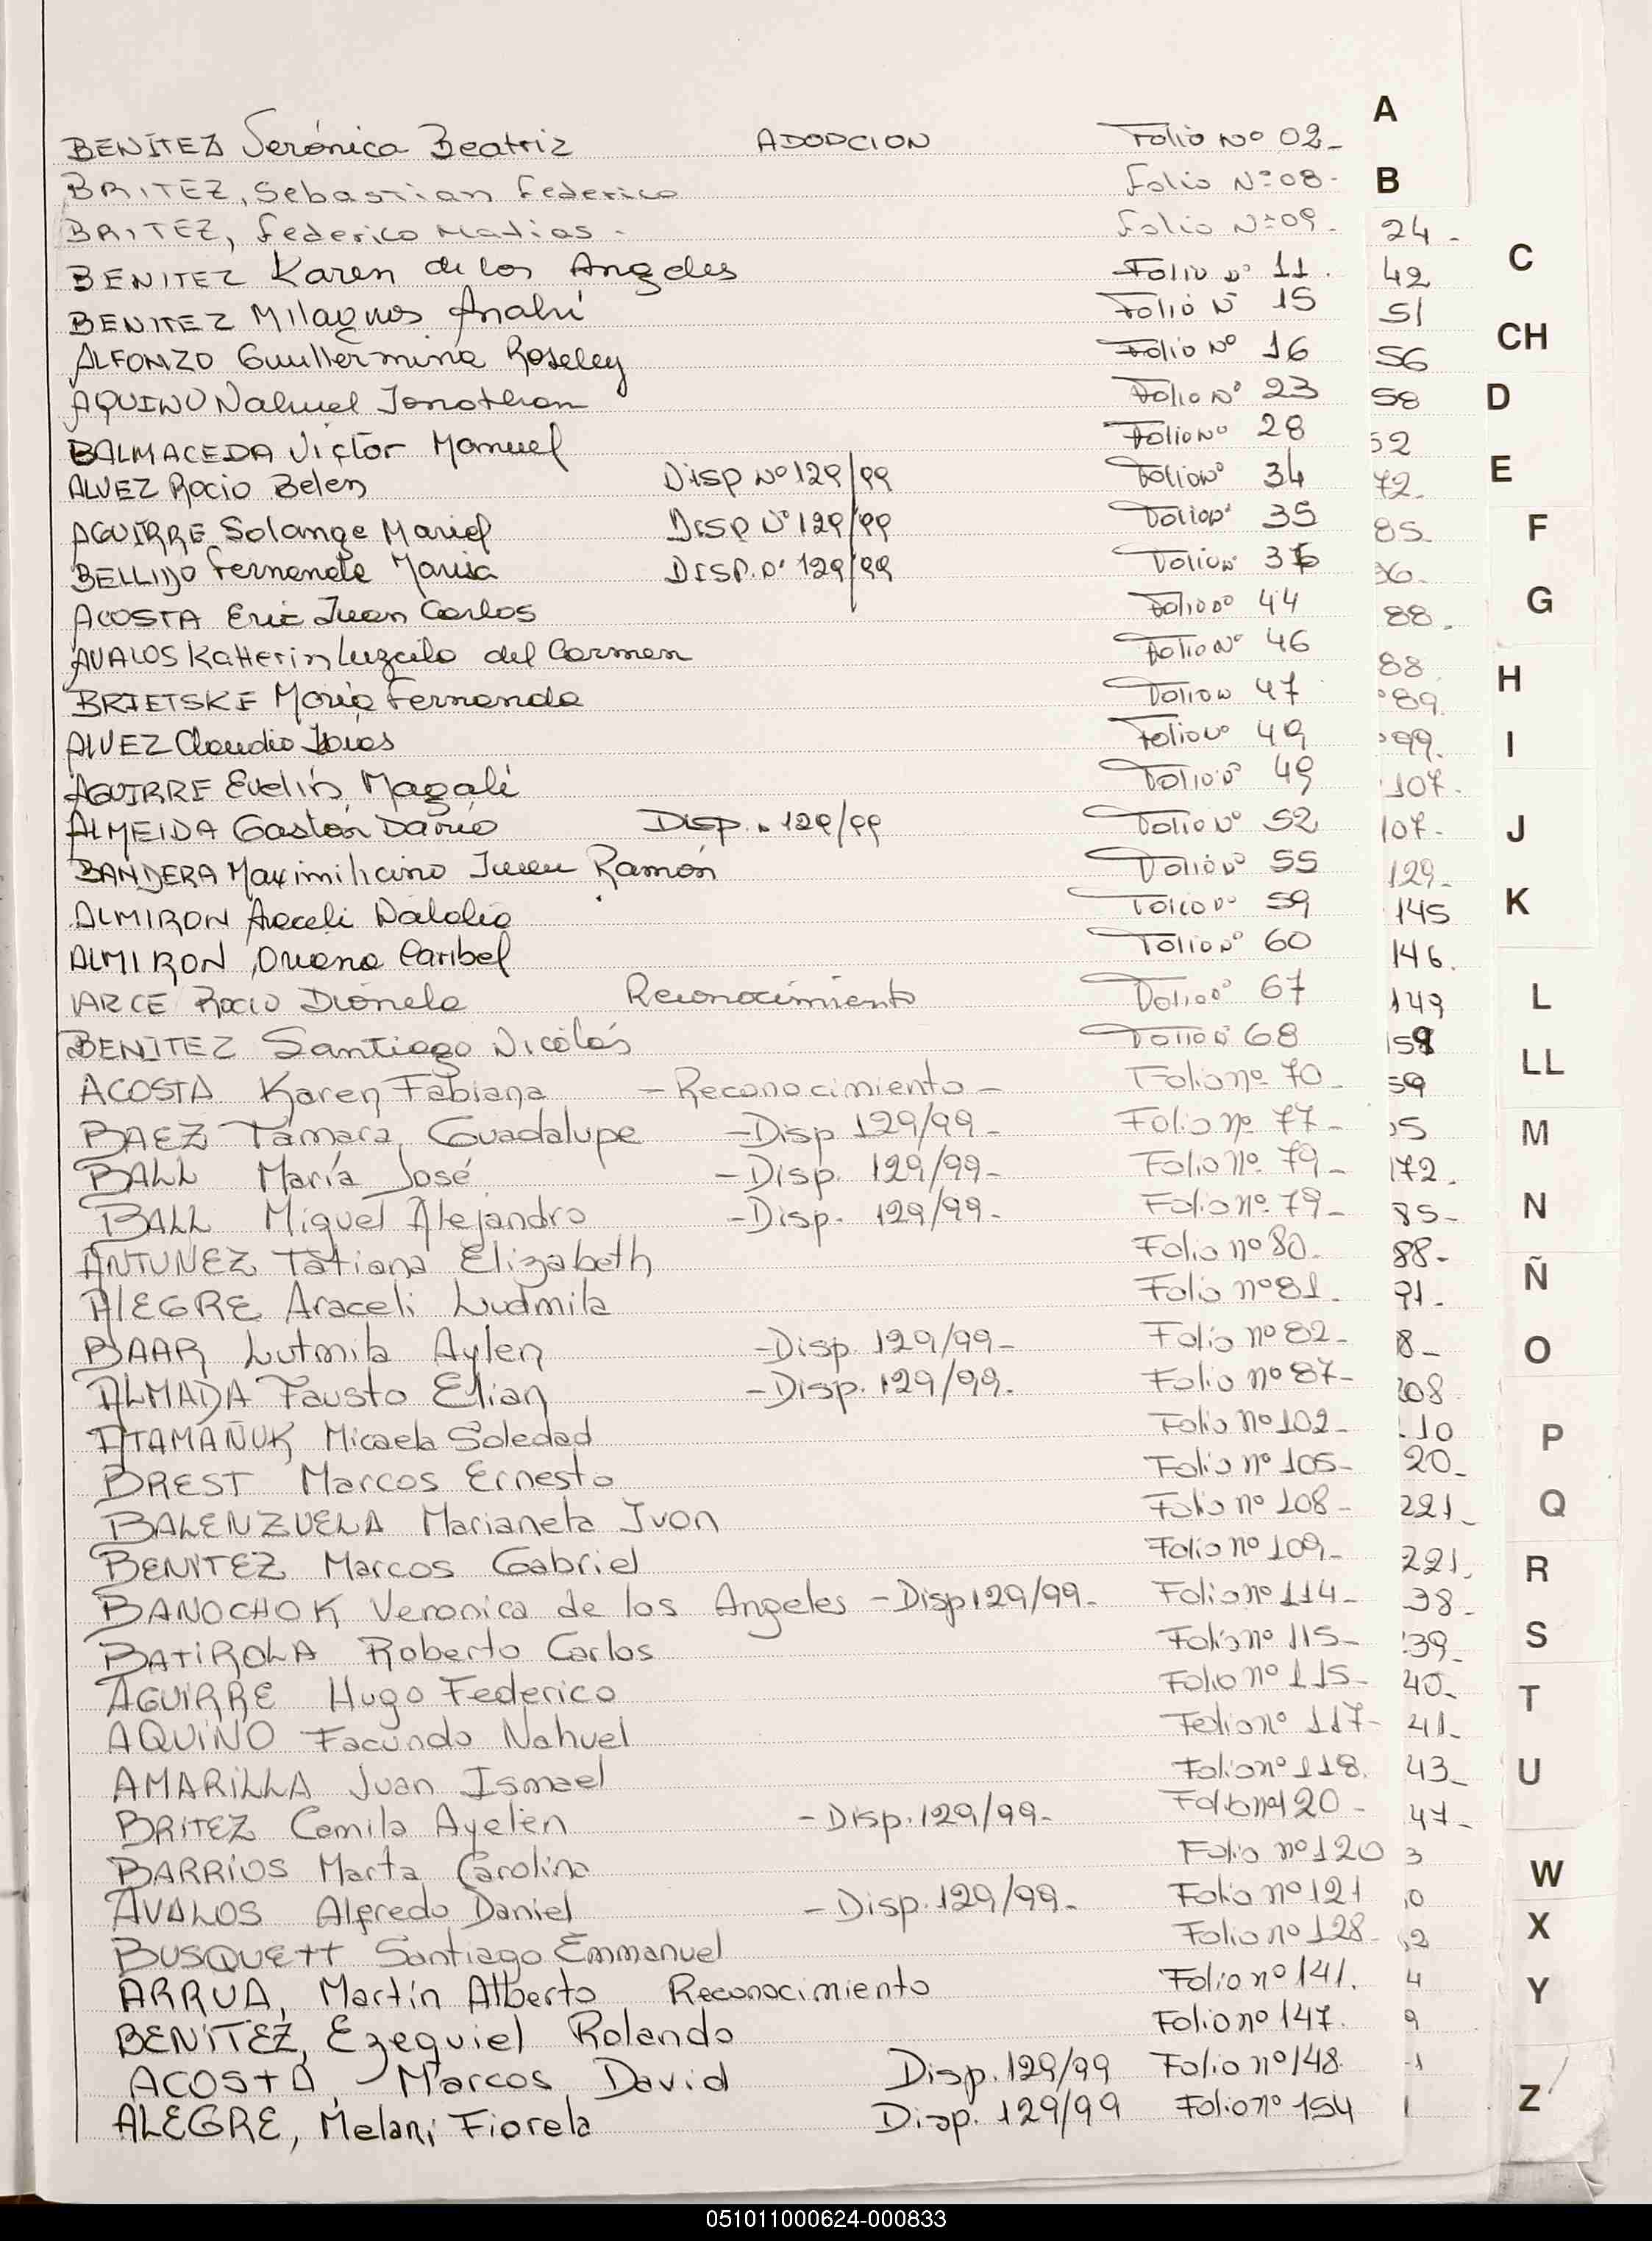 A
BENITEZ Verónica Beatriz ADOPCION Folio Nº 02-
BRITEZ, Sebastian Federico Folio Nº 08- B
BRITEZ, Federico Matias - Folio Nº 09- 24-
BENITEZ Karen de los Angeles Folio Nº 11. 42 C
BENITEZ Milagros Anahí Folio Nº 15 51
ALFONZO Guillermina Roseley Folio Nº 16 56 CH
AQUINO Nahuel Jonathan Folio Nº 23 58 D
BALMACEDA Victor Manuel Folio Nº 28 52
ALVEZ Rocio Belen Disp Nº 129/99 Folio Nº 34 72. E
AGUIRRE Solange Mariel Disp Nº 129/99 Folio Nº 35 85- F
BELLIDO Fernanda Disp. Nº 129/99 Folio Nº 36.
ACOSTA Eric Juan Carlos Folio Nº 44 88. G
AVALOS Katterin Luzcila del Carmen Folio Nº 46 88
BRIETSKE Maria Fernanda Folio Nº 47 89. H
ALVEZ Claudio Folio Nº 49 99. I
AGUIRRE Evelin Magalí Folio Nº 49 107-
ALMEIDA Gastón Dario Disp. Nº 129/99 Folio Nº 52 107- J
BANDERA Maximiliano Juan Ramón Folio Nº 55 129-
ALMIRON Araceli Natalia Folio Nº 59 145 K
ALMIRON Oriana Caribel Folio Nº 60 146.
ARCE Rocio Dionela Reconocimiento Folio Nº 67 149 L
BENITEZ Santiago Nicolás Folio Nº 68
ACOSTA Karen Fabiana - Reconocimiento - Folio nº 70- 59 LL
BAEZ Tamara Guadalupe - Disp 129/99- Folio nº 77- M
BALL María José - Disp. 129/99- Folio nº 79- 172.
BALL Miguel Alejandro - Disp. 129/99- Folio nº 79- 85- N
ANTUNEZ Tatiana Elizabeth Folio nº 80- 88-
ALEGRE Araceli Ludmila Folio nº 81. 91. Ñ
BAAR Lutmila Aylen - Disp. 129/99- Folio nº 82- 8- O
ALMADA Fausto Elian - Disp. 129/99. Folio nº 87- 208
ATAMAÑUK Micaela Soledad Folio nº 102- 10 P
BREST Marcos Ernesto Folio nº 105- 20-
BALENZUELA Marianela Ivon Folio nº 108- 221- Q
BENITEZ Marcos Gabriel Folio nº 109- 221.
BANOCHOK Veronica de los Angeles - Disp 129/99- Folio nº 114- 38- R
BATIROLA Roberto Carlos Folio nº 115- 39- S
AGUIRRE Hugo Federico Folio nº 115- 40-
AQUINO Facundo Nahuel Folio nº 117- 41- T
AMARILLA Juan Ismael Folio nº 118. 43- U
BRITEZ Camila Ayelen - Disp. 129/99- Folio nº 120- 47-
BARRIOS Marta Carolina Folio nº 120 3 W
AVALOS Alfredo Daniel - Disp. 129/99- Folio nº 121 0
BUSQUETT Santiago Emmanuel Folio nº 128- 2 X
ARRUA, Martín Alberto Reconocimiento Folio nº 141. 4 Y
BENITEZ, Ezequiel Rolando Folio nº 147. 9
ACOSTA, Marcos David Disp. 129/99 Folio nº 148. 1
ALEGRE, Melani Fiorela Disp. 129/99 Folio nº 154 1 Z
051011000624-000833